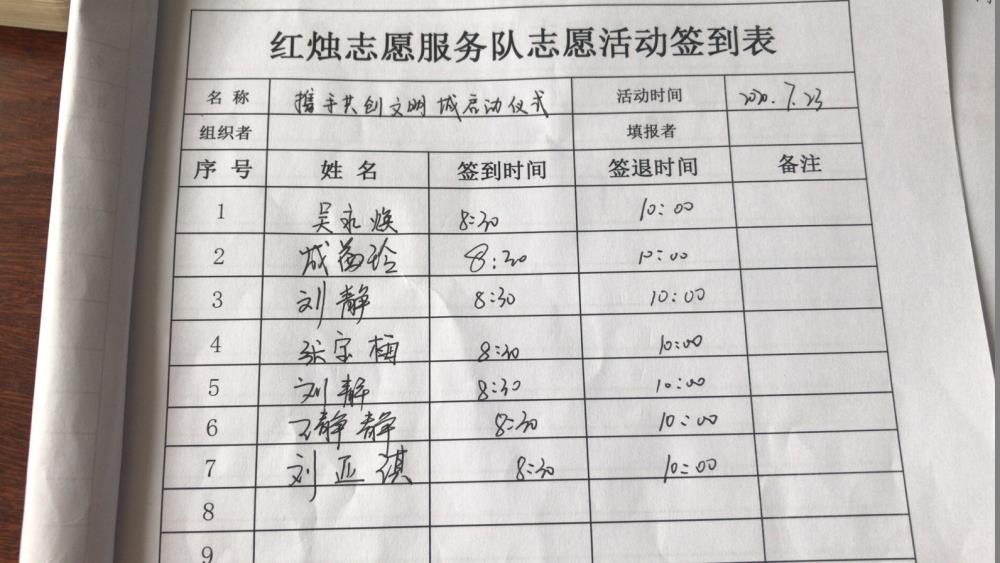 红烛志愿服务队志愿活动签到表
名称 携手共创文明城启动仪式 活动时间 2020.7.23
组织者 填报者
序号 姓名 签到时间 签退时间 备注
1 吴永焕 8:30 10:00
2 成菊玲 8:30 10:00
3 刘静 8:30 10:00
4 张宝梅 8:30 10:00
5 刘静 8:30 10:00
6 王静静 8:30 10:00
7 刘亚祺 8:30 10:00
8
9